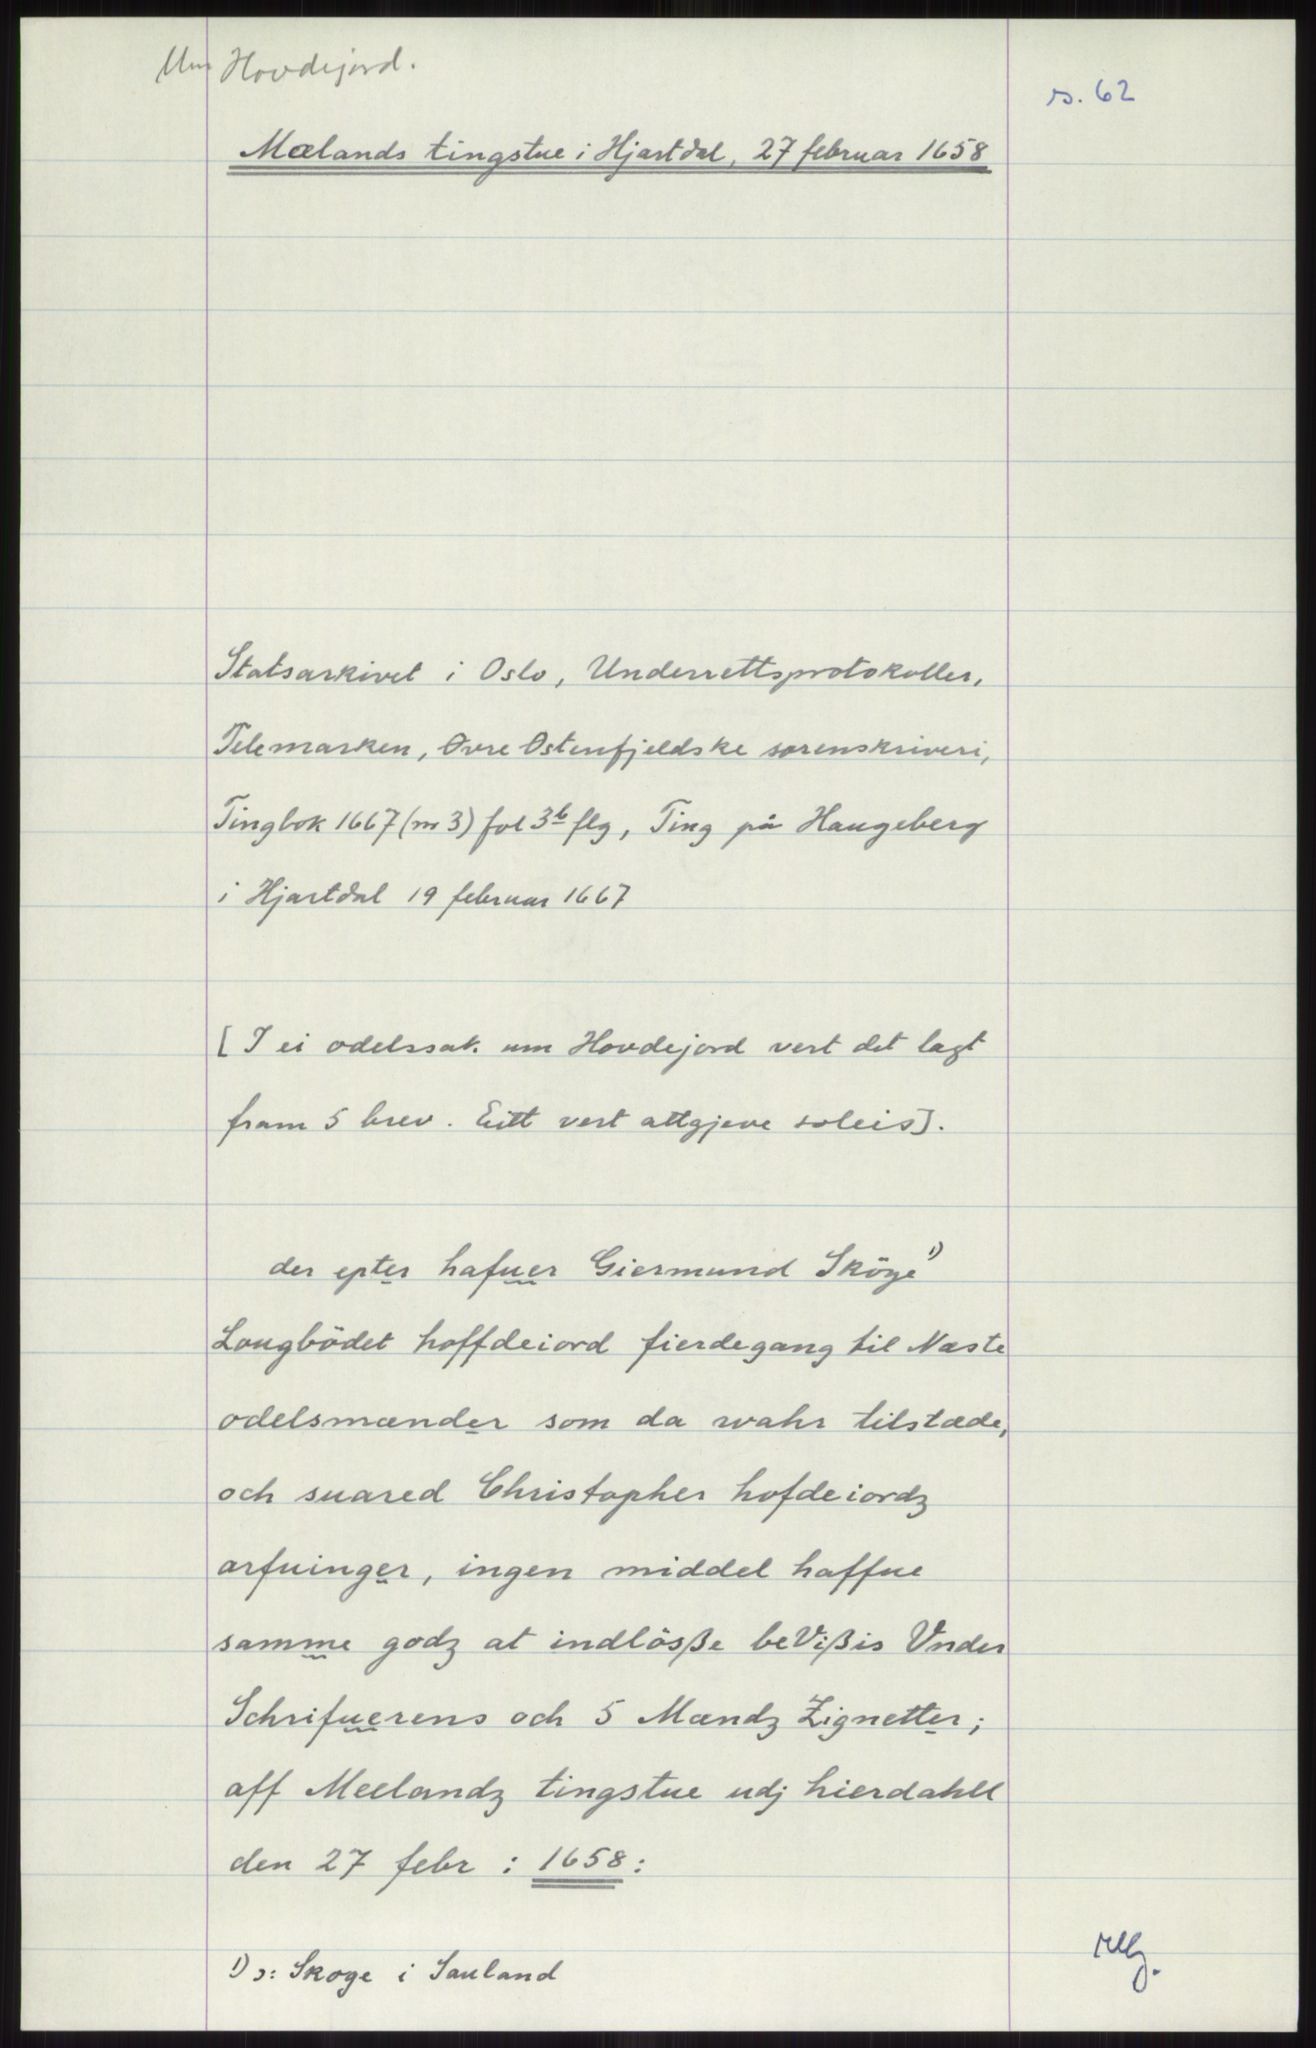 Um Hovdejord.
s. 62
Mælands tingstue i Hjartdal, 27 februar 1658
Statsarkivet i Oslo, Underrettsprotokoller,
Telemarken, Øvre Østenfjeldske sorenskriveri,
Tingbok 1667 (nr 3) fol 3b flg, Ting på Haugeberg
i Hjartdal 19 februar 1667
[I ei odelssak um Hovdejord vert det lagt
fram 5 brev. Eitt vert attgjeve soleis].
der epter hafuer Giermund Sköge 1)
Lougbödet hoffdeiord fierdegang til Næste
odelsmænder som da wahr tilstæde,
och suared Christopher hofdeiordz
arfuinger, ingen middel haffue
samme godz at indlösße beVißis Vnder
Schrifuerens och 5 Mændz Zignetter;
aff Meelandz tingstue udj hierdahll
den 27 febr : 1658:
1) ɔ: Skoge i Sauland